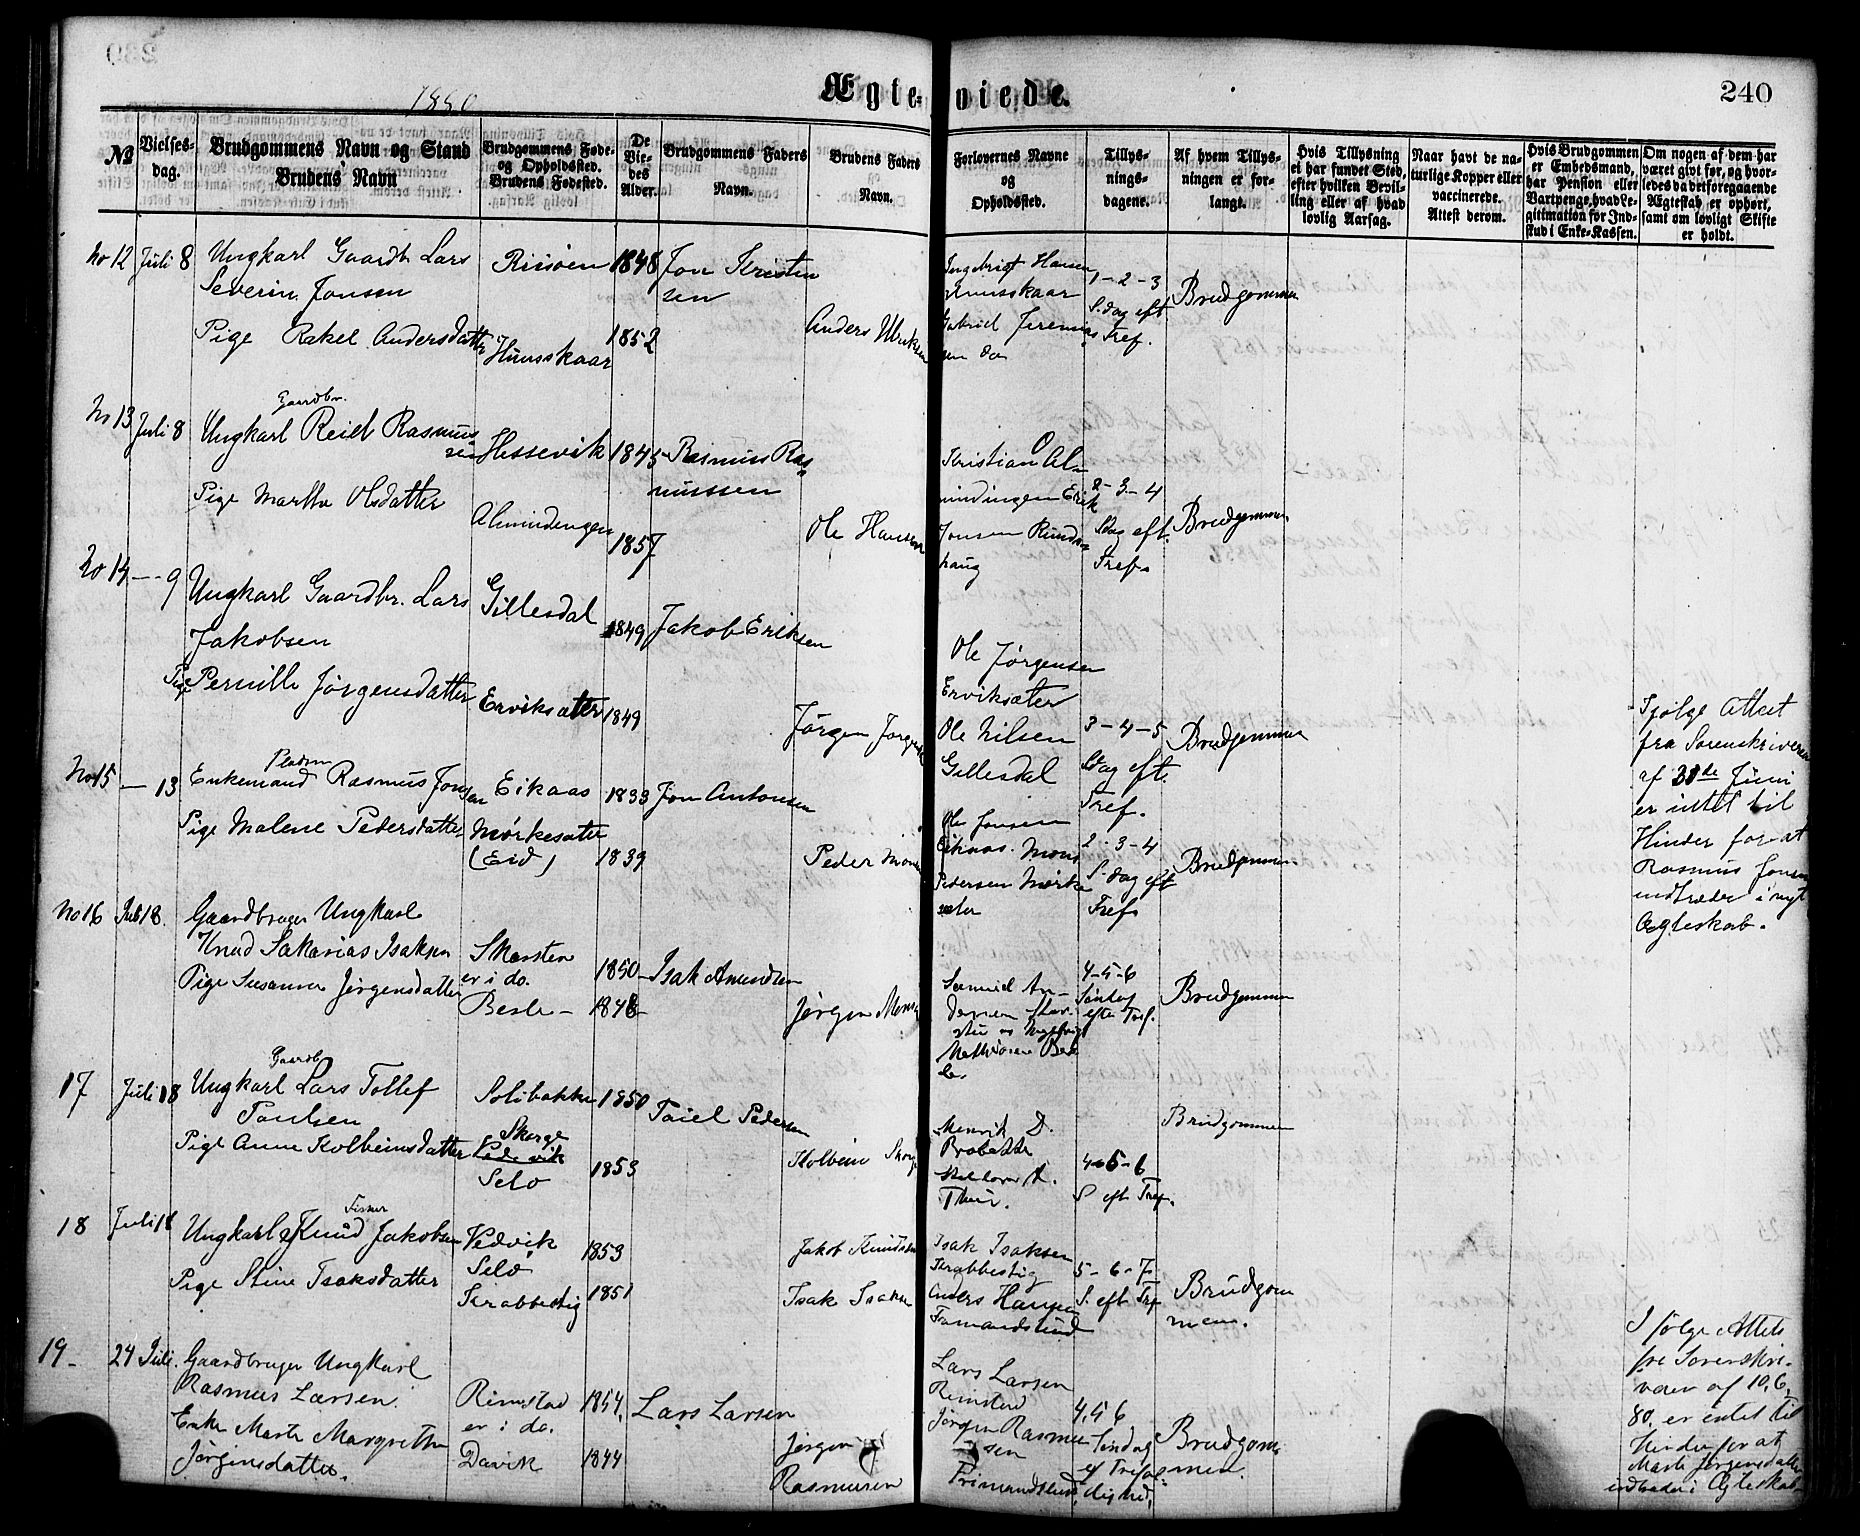 1880
Ægte-viede.
240
No
Vielses-
dag.
Brudgommens Navn og Stand
Brudens Navn
Brudgommens Føde-
og Opholdssted.
Brudens Fødested.
De
Vie-
des
Alder.
Brudgommens Faders
Navn.
Brudens Faders
Navn.
Forlovernes Navne
og
Opholdssted.
Tillys-
nings-
dagene.
Af hvem Tillys-
ningen er for-
langt.
Hvis Tillysning
ei har fundet Sted,
efter hvilken Bevil-
ling eller af hvad
lovlig Aarsag.
Naar havt de na-
turlige Kopper eller
vaccinerede.
Attest derom.
Hvis Brudgommen
er Embedsmand,
har Pension eller
Vartpenge, hvad Le-
gitimation for Ind-
skud i Enke-Kassen.
Om nogen af dem har
været gift før, og hvor-
ledes da det foregaaende
Ægteskab er ophørt,
samt om lovligt Skifte
er holdt.
No 12 Juli 8
Ungkarl Gaardb. Lars
Severin Jonsen
Pige Rakel Andersdatter
Riisøen
Huusskaar
1848
1852
Jon Kristen
sen
Anders Ulriksen
Ingebrigt Hansen
Huusskaar
Gabriel Jeremias
sen do
1-2-3
S.dag eft.
Tref.
Brudgommen
No 13 Juli 8
Gaardbr.
Ungkarl Reiel Rasmus
sen
Pige Marthe Olsdatter
Hessevik
Almindengen
1845
1857
Rasmus Ras
mussen
Ole Hansen
Kristian O Al-
mindingen Erik
Jonsen Runde-
haug
2-3-4
Sdag eft.
Tref.
Brudgommen
No 14 -- 9
Ungkarl Gaardbr. Lars
Jakobsen
Pige Pernille Jørgensdatter
Gillesdal
Erviksæter
1849
1849
Jakob Eriksen
Jørgen Jørgensen
Ole Jørgensen
Erviksæter
Ole Nilsen
Gillesdal
3-4-5
Sdag eft.
Tref.
Brudgommen
No 15 - 13
Pladsm
Enkemand Rasmus Jonsen
Pige Malene Pedersdatter
Eikaas
Mørkesæter
(Eid)
1833
1839
Jon Antonsen
Peder Mons
Ole Jonsen
Eikaas. Mons
Pedersen Mørke
sæter
2-3-4
S.dag eft
Tref.
Brudgommen
Ifølge Attest
fra Sorenskriveren
af 30de Juni
er intet til
Hinder for at
Rasmus Jonsen
indtræder i nyt
Ægteskab.
No 16 Juli 8.
Gaardbruger Ungkarl
Knud Sakarias Isaksen
Pige Susanna Jørgensdatter
Skarsten
er i do.
Besle -
1850
1848
Isak Amundsen
Jørgen Mons
Samuel An-
dersen
4-5-6
Søndag
efter Tref.
Brudgommen
17 Juli 18
Gaardb
Ungkarl Lars Tollef
Paulsen
Pige Anne Kolbeinsdatter
Solibakke
Skorge
Vedvik
Selø
1850
1853
Pedersen
Kolbein Skorge
Henrik D.
Thue.
4-5-6
S. eft Tref.
Brudgommen
18 Juli 18
Fisker
Ungkarl Knud Jakobsen
Pige Stine Isaksdatter
Vedvik
Selø
Krabbestig
1853
1851
Jakob Knudsen
Isak Isaksen
Isak Isaksen
Krabbestig
Anders Hansen
5-6-7
S. eft Tref
Brudgom
men.
19- 24 Juli.
Gaardbruger Ungkarl
Rasmus Larsen
Enke Marte Margrethe
Jørginsdatter.
Rimstad
er i do.
Davik
1854
1844
Lars Larsen
Jørgen
Rasmusen
Lars Larsen
Rimstad
Jørgen Rasmu
sen
4, 5 6
Søndag
Brudgom
men.
I følge Attest
fra Sorenskri-
veren af 10,6,
80, er intet til
Hinder for at
Marte Jørgensdatter
indtræder i Ægteskab.